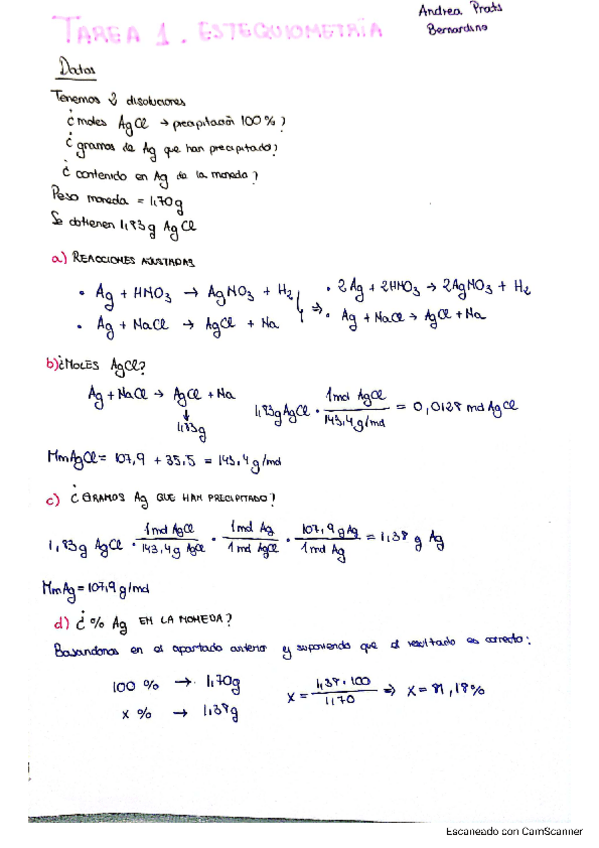 Andrea Prats
Bernardino
TAREA 1. ESTEQUIOMETRÍA
Datos
Tenemos 2 disoluciones
¿moles AgCl → precipitación 100%?
¿gramos de Ag que han precipitado?
¿contenido en Ag de la moneda?
Peso moneda = 1,70g
Se obtienen 1,83g AgCl
a) REACCIONES AJUSTADAS
• Ag + HNO3 → AgNO3 + H2 ⇒ • 2Ag + 2HNO3 → 2AgNO3 + H2
• Ag + NaCl → AgCl + Na • Ag + NaCl → AgCl + Na
b) ¿MOLES AgCl?
Ag + NaCl → AgCl + Na
↓
1,83g
1,83g AgCl · 1mol AgCl / 143,4g/mol = 0,0128 mol AgCl
MmAgCl = 107,9 + 35,5 = 143,4 g/mol
c) ¿GRAMOS Ag QUE HAN PRECIPITADO?
1,83g AgCl · 1mol AgCl / 143,4g AgCl · 1mol Ag / 1mol AgCl · 107,9g Ag / 1mol Ag = 1,38 g Ag
MmAg = 107,9 g/mol
d) ¿% Ag EN LA MONEDA?
Basandonos en el apartado anterior y suponiendo que el resultado es correcto:
100 % → 1,70g
x % → 1,38g
x = 1,38 · 100 / 1,70 ⇒ x = 81,18%
Escaneado con CamScanner